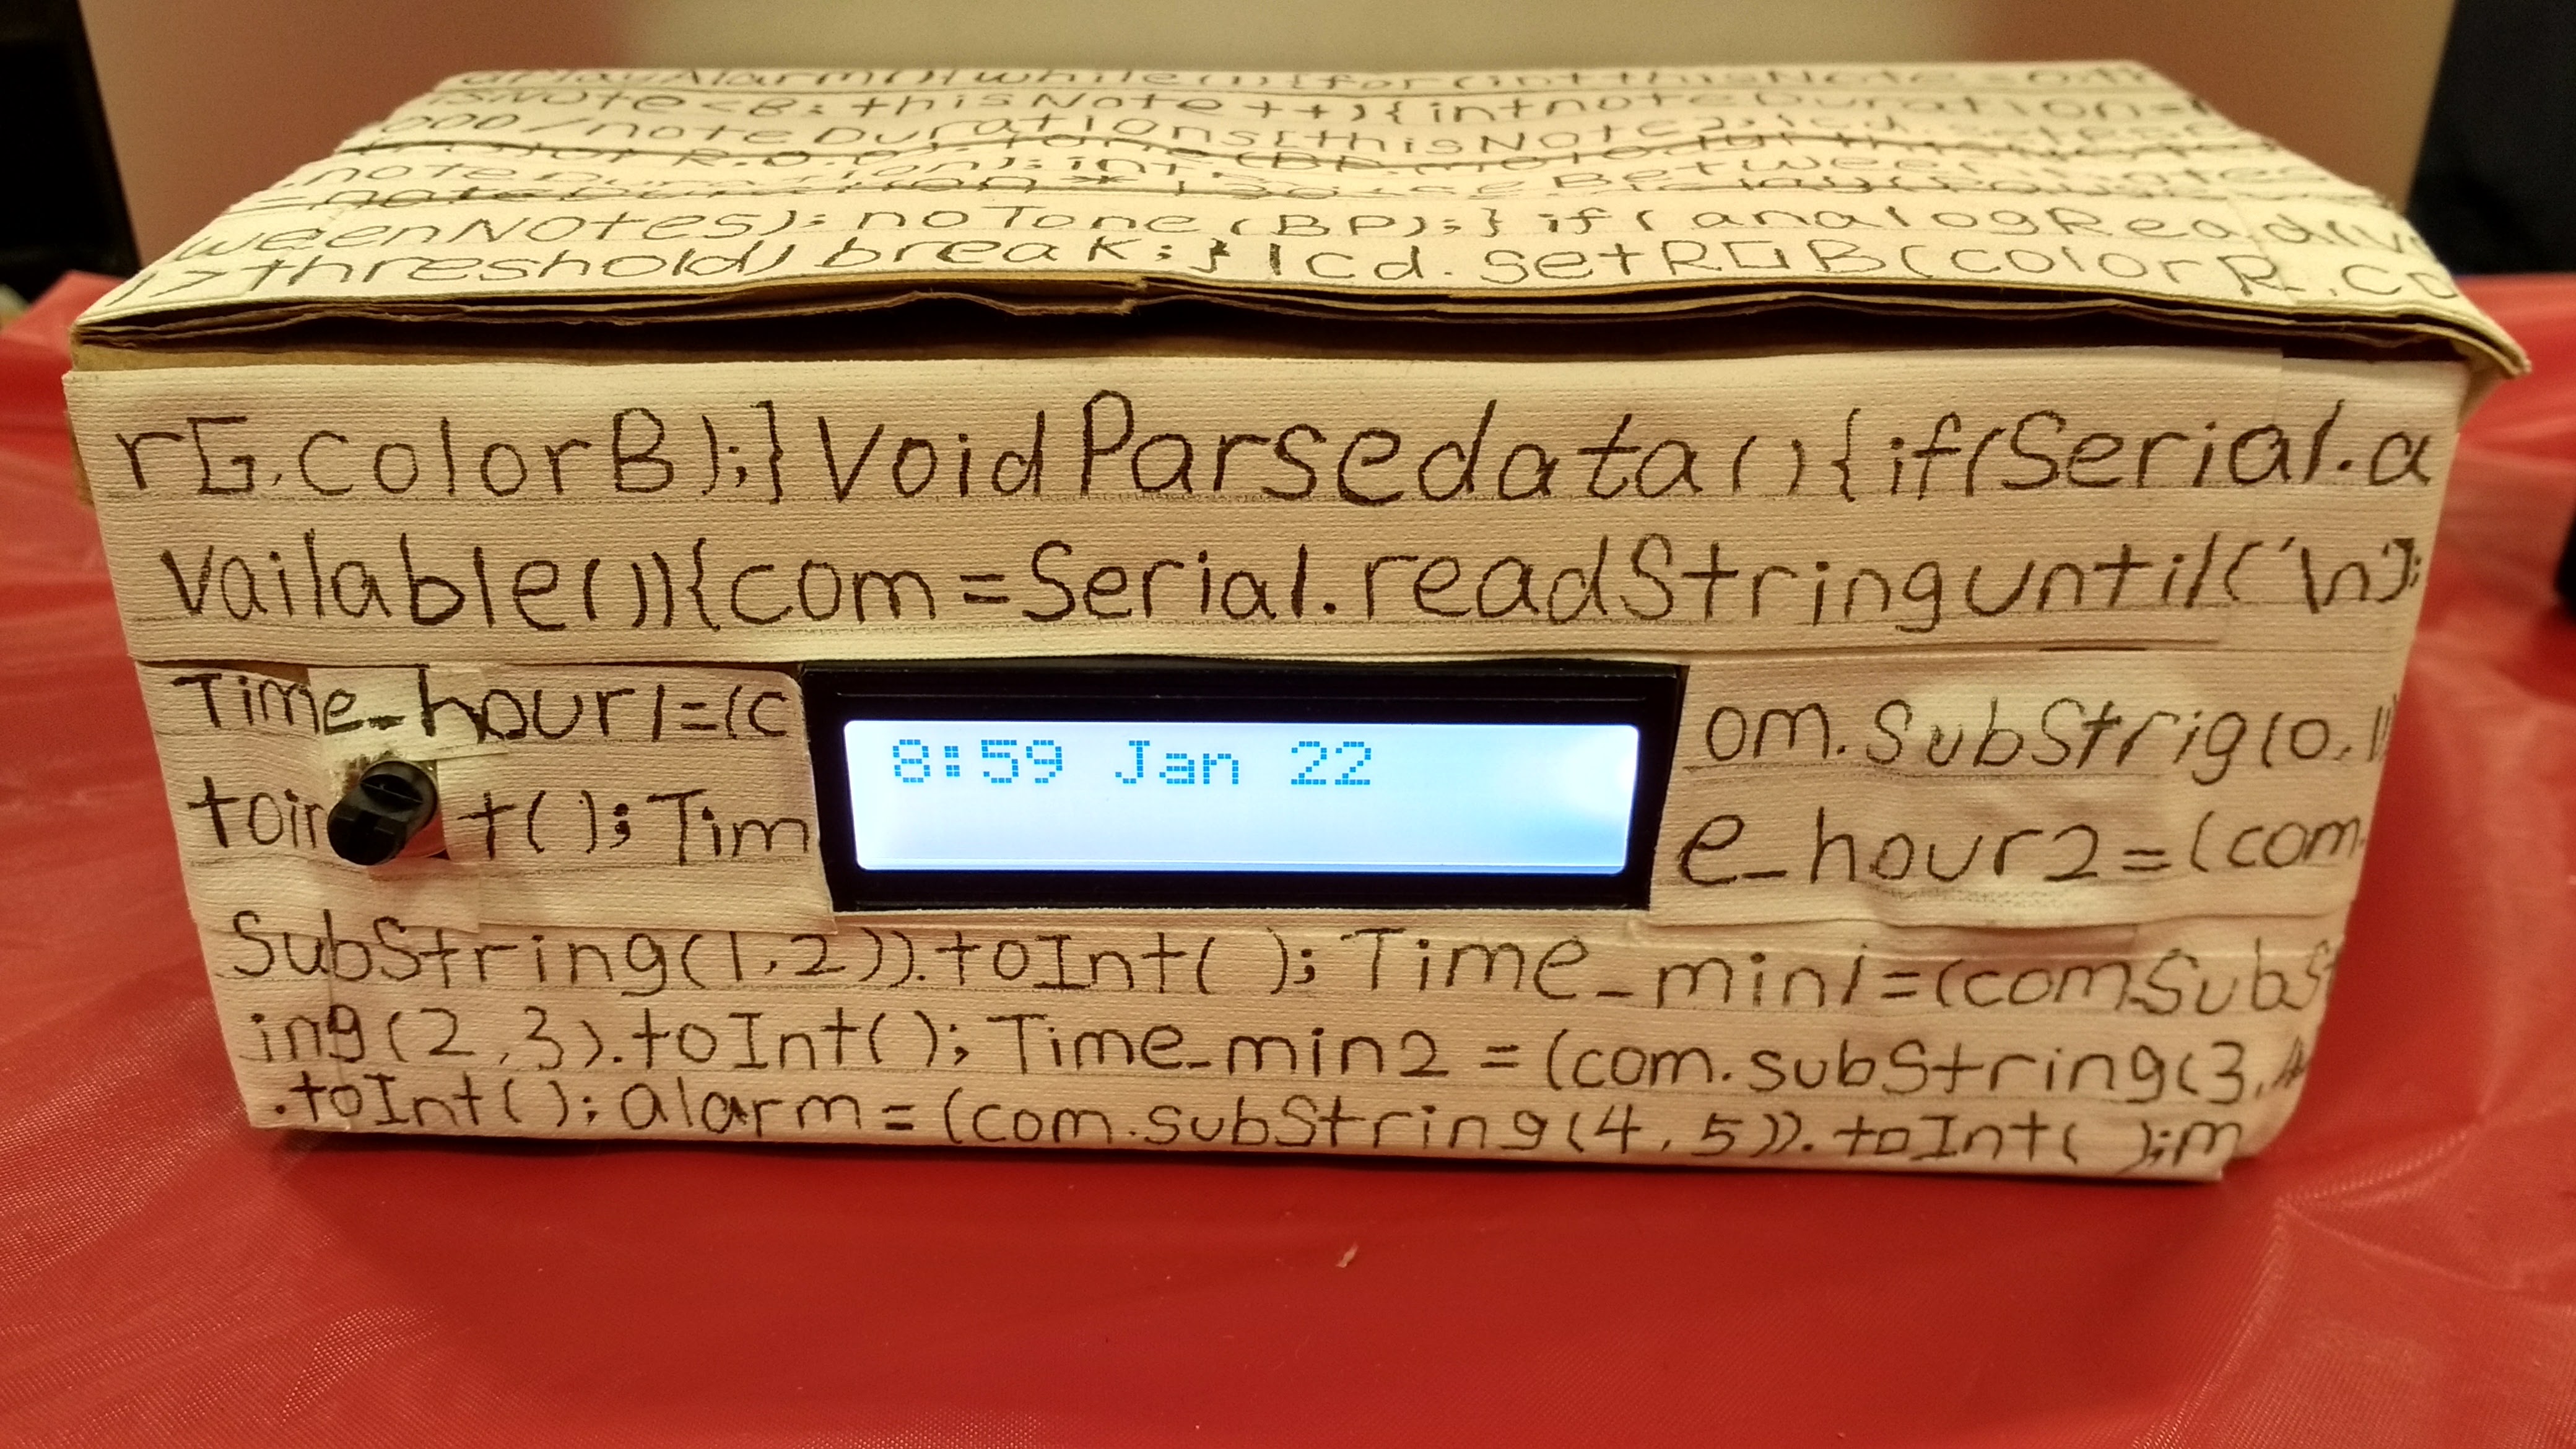 playAlarm(){while(1){for(int thisNote=0;th
isNote<8;thisNote++){intnoteDuration=1
000/noteDurations[thisNote];lcd.setRGB
noteDuration);int
=noteDuration*1.30;
weenNotes);noTone(BP);}if(analogRead(
)>threshold)break;}lcd.setRGB(colorR,co
rG,colorB);}VoidParsedata(){if(Serial.a
vailable()){com=Serial.readStringuntil('\n');
Time_hour1=(c om.SubStrig(0,1)
toin t();Tim 8:59 Jan 22 e_hour2=(com.
SubString(1,2)).toInt();Time_min1=(com.SubS
ing(2,3).toInt();Time_min2=(com.subString(3,4
.toInt();alarm=(com.subString(4,5)).toInt();m